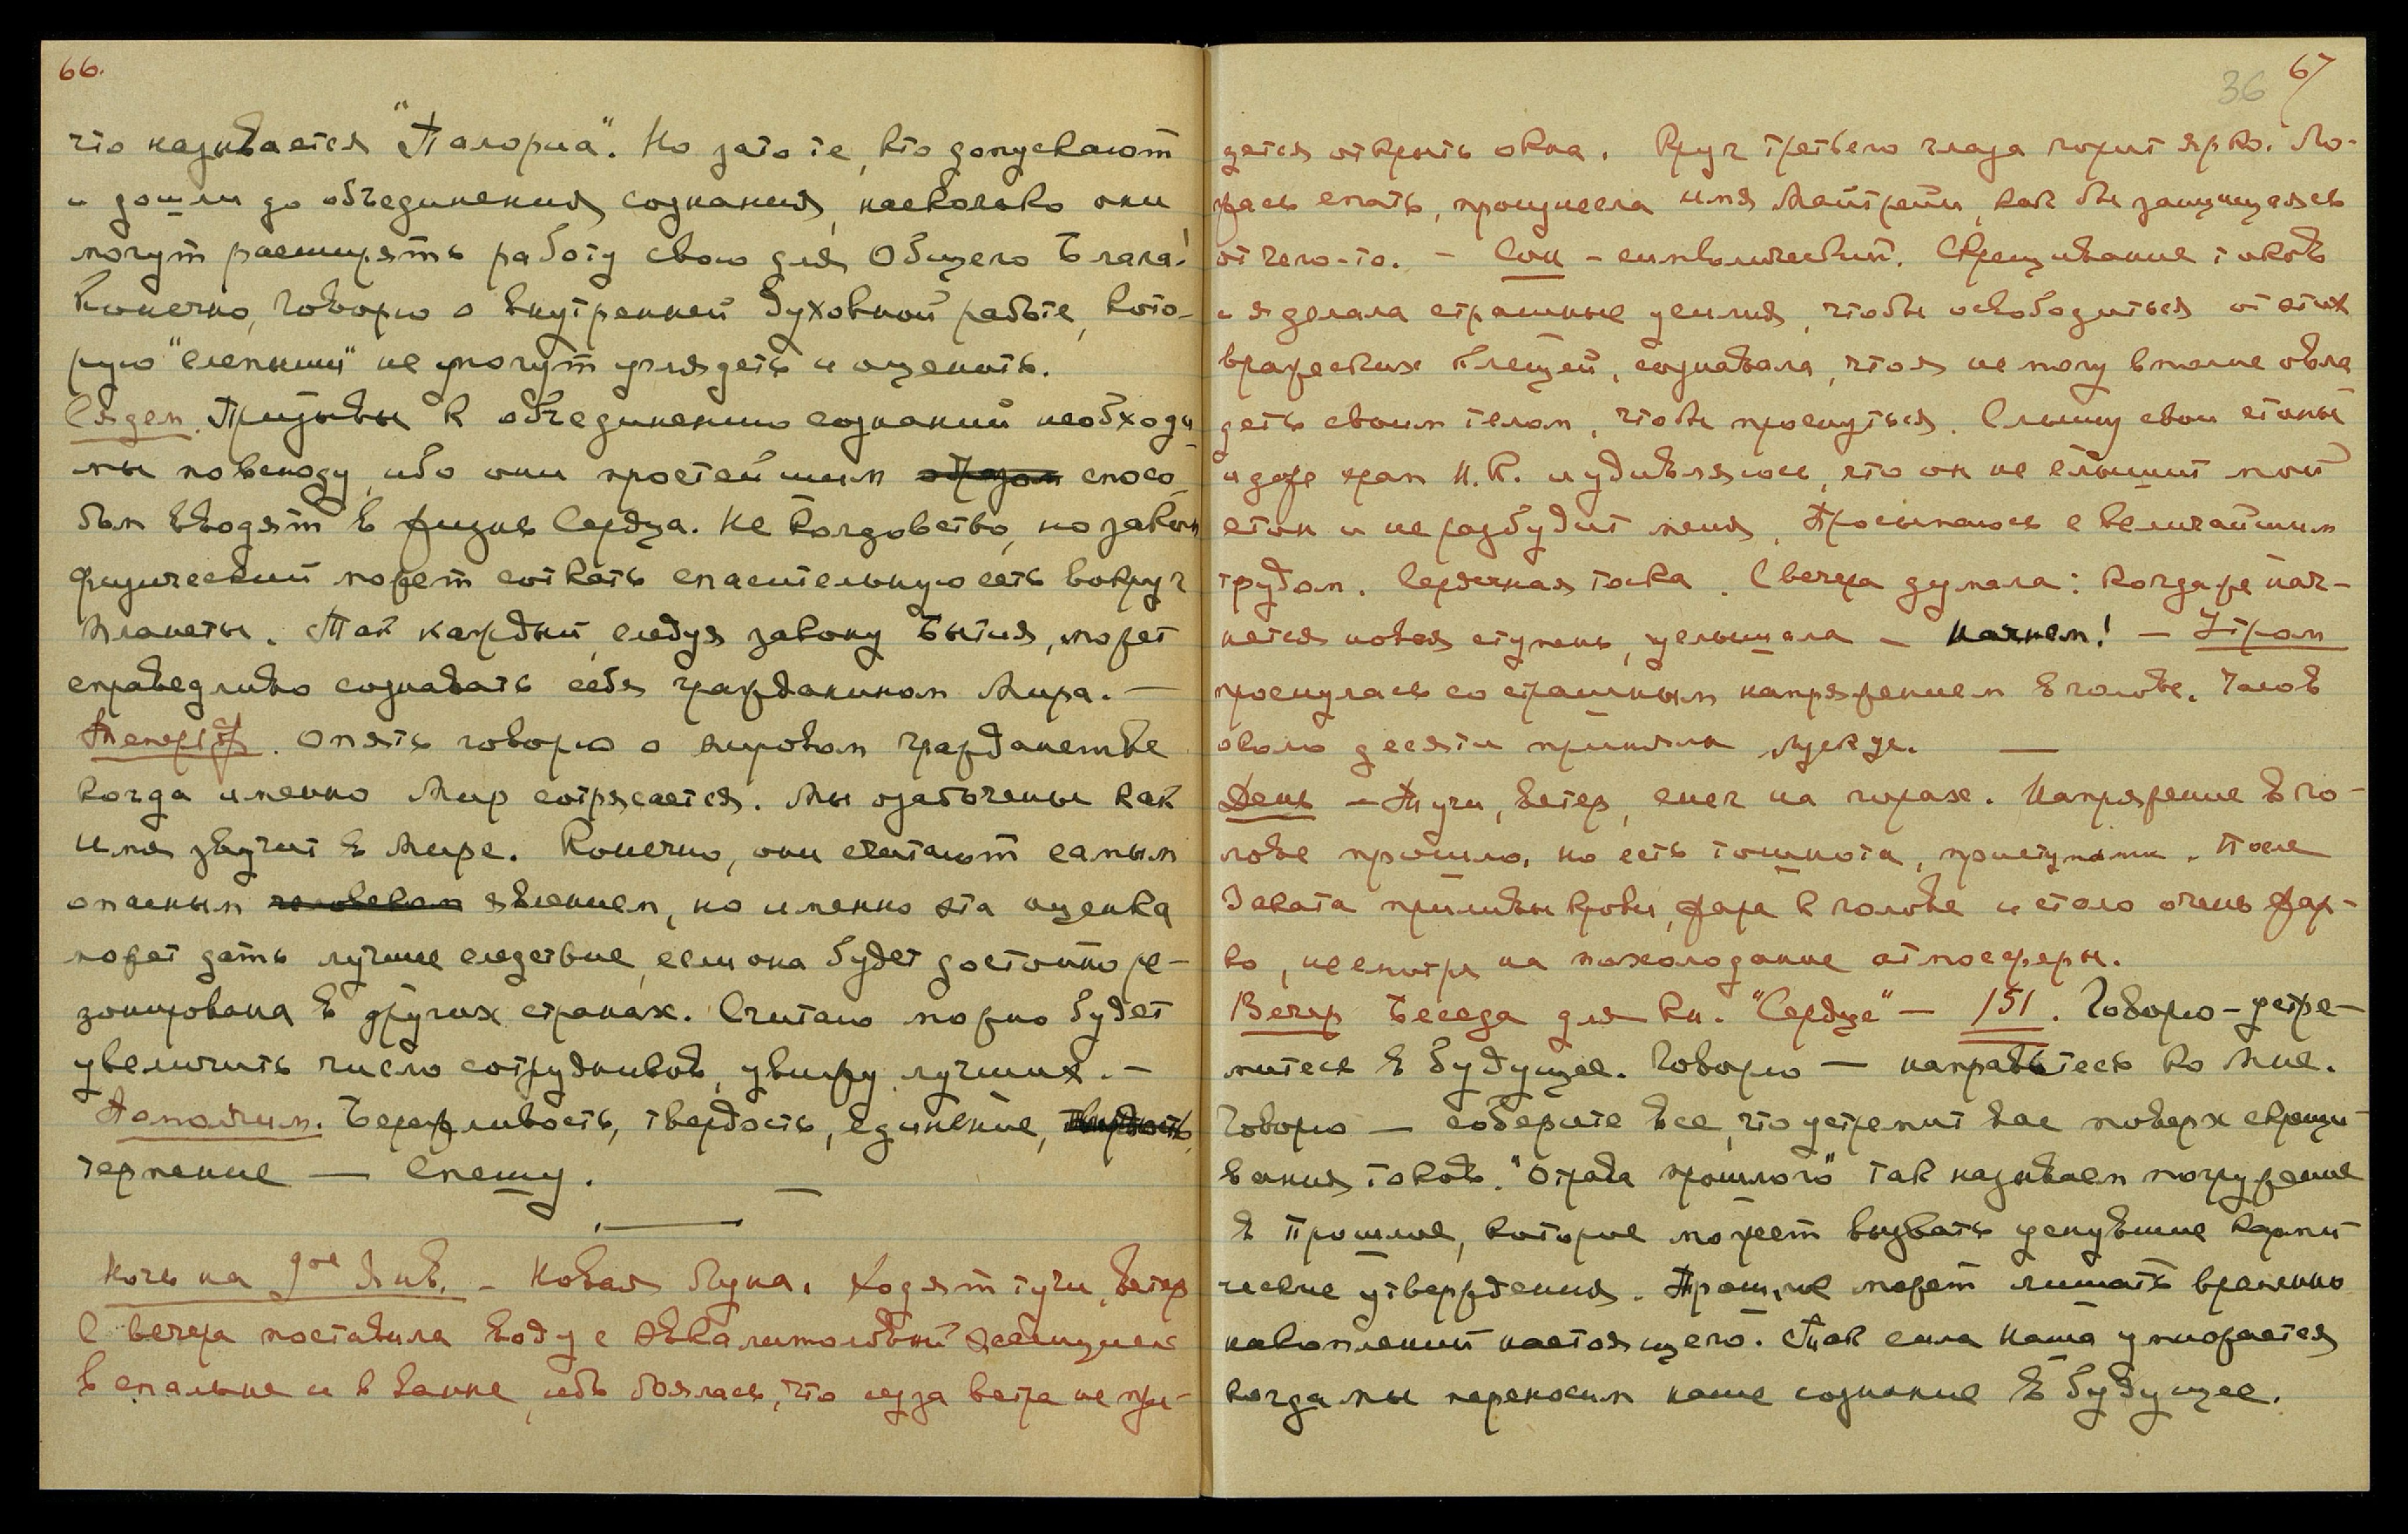 66.
что называется "Палориа". Но зато те, кто допускают
и дошли до объединения сознания, насколько они
могут расширять работу свою для Общего Блага!
Конечно, Говорю о внутренней духовной работе, кото-
рую "слепыши" не могут углядеть и оценить.
Сядем. Призывы к объединению сознаний необходи
мы повсюду, ибо они простейшим образом спосо
бом вводят в жизнь Сердца. Не колдовство, но закон
физический может соткать спасительную сеть вокруг
планеты. Так каждый, следуя закону Бытия, может
справедливо сознавать себя гражданином Мира. —
Опять говорю о мировом гражданстве
когда именно Мир сотрясается. Мы озабочены как
имя звучит в Мире. Конечно, они считают самым
опасным человеком явлением, но именно эта оценка
может дать лучшие следствие, если она будет достойно ре-
зонирована в других странах. Считаю можно будет
увеличить число сотрудников, увижу лучших. —
Помолчим. Бережливость, твердость, единение, твердость
терпение — Спешу. —
Ночь на 9ое Янв. — Новая Луна. Ходят тучи, ветер
С вечера поставила воду с эвкалиптовой
в спальне и в ванне, ибо боялась, что из за ветра не при-
36 67
дется открыть окна. Круг третьего глаза горит ярко. Ло-
жась спать, произнесла имя Майтрейи, как бы защищаясь
от чего-то. — Сон — символический. Скрещивание токов
и я делала страшные усилия, чтобы освободиться от этих
вражеских клещей, сознавала, что я не могу вполне овла
деть своим телом, чтобы проснуться. Слышу свои стоны
и даже храп Н.К. и удивляюсь, что он не слышит мой
стон и не разбудит меня. Просыпаюсь с величайшим
трудом. Сердечная тоска. С вечера думала: когда же нач-
нется новая ступень, услышала — Начнем! — Утром
проснулась со страшным напряжением в голове. Часов
около десяти приняла
День — Тучи, ветер, снег на горах. Напряжение в го-
лове прошло, но есть тошнота, приступами. После
Заката приливы крови, жара к голове и стало очень жар-
ко, несмотря на похолодание атмосферы.
Вечер Беседа для кн. "Сердце" — 151. Говорю — устре-
митесь в будущее. Говорю — направьтесь ко Мне.
Говорю — соберите все, что устремит вас поверх скрещи
вания токов. "Отрава прошлого" так называем погружение
в Прошлое, которое может вызвать уснувшие карми
ческие утверждения. Прошлое может лишать временно
накоплений настоящего. Так сила Наша умножается
когда мы переносим наше сознание в будущее.